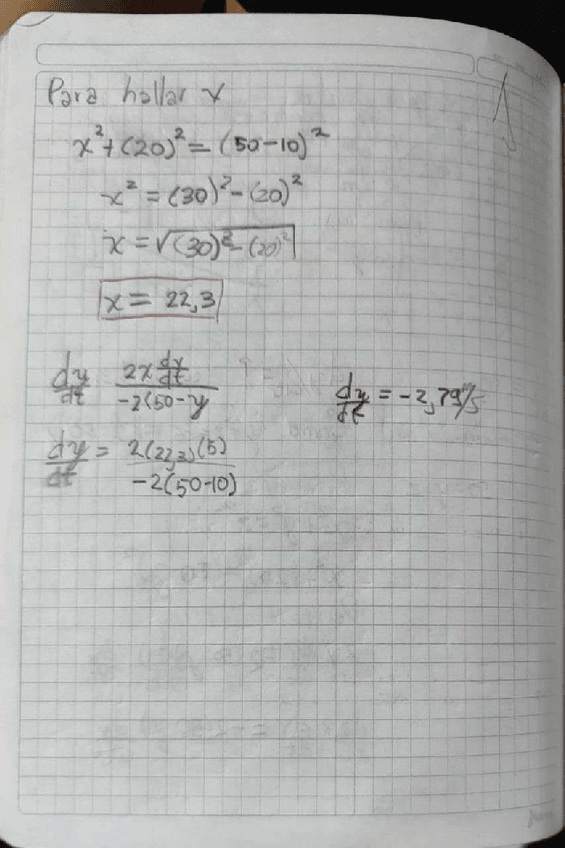 Para hallar x
x² + (20)² = (50-10)²
x² = (30)² - (20)²
x = √(30)² - (20)²
x = 22,3
dy/dt 2x dx/dt / -2(50-y
dy/dt = -2,79 m/s
dy/dt = 2(22,3)(5) / -2(50-10)